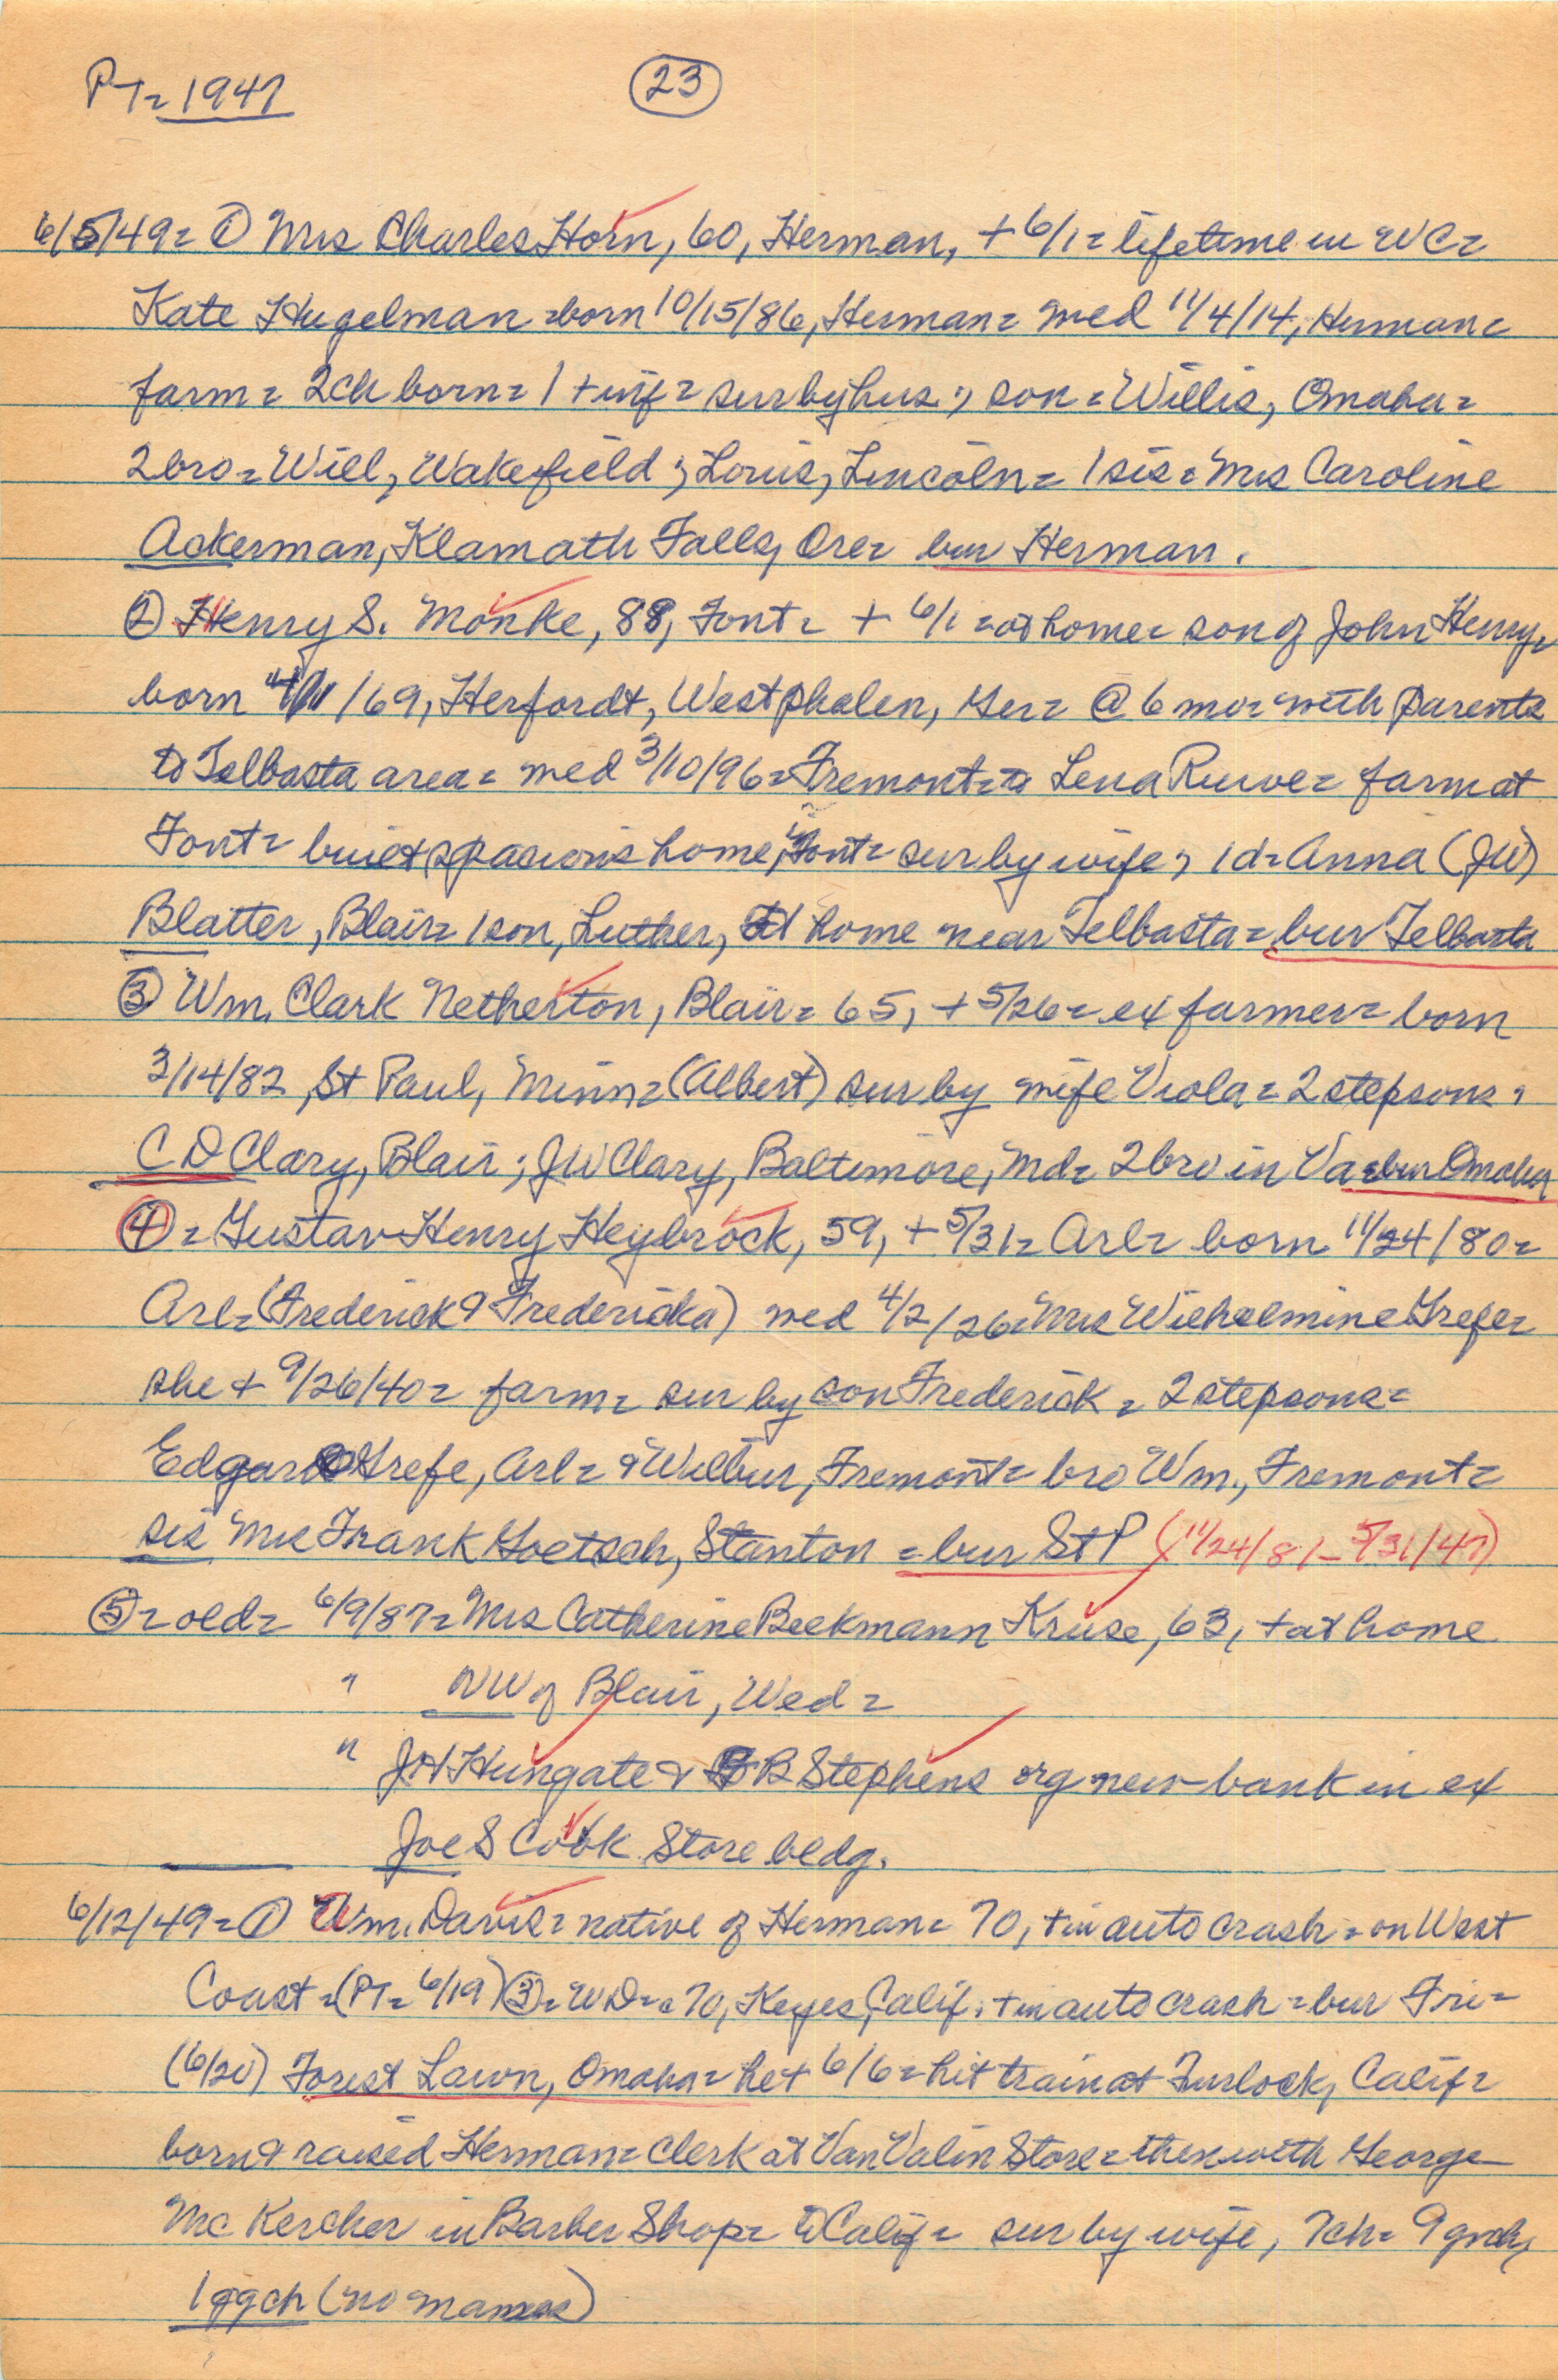 PT= 1947
23
6/5/49= ① Mrs Charles Horn, 60, Herman, + 6/1= lifetime in WC=
Kate Hugelman =born 10/15/86, Herman= med 11/4/14, Herman=
farm= 2ch born= 1 + inf= sur by hus; son= Willis, Omaha=
2 bro= Will, Wakefield; Louis, Lincoln= 1 sis= Mrs Caroline
Ackerman, Klamath Falls, Ore= bur Herman.
② Henry S. Monke, 88, Font= + 6/1 =at home= son of John Henry=
born /69, Herfordt, Westphalen, Ger= @ 6 mo= with parents
to Telbasta area= med 3/10/96= Fremont= to Lena Ruwe= farm at
Font= built spacious home, in Font= sur by wife; 1d= Anna (JW)
Blatter, Blair= 1 son, Luther, at home near Telbasta= bur Telbasta
③ Wm. Clark Netherton, Blair= 65, + 5/26= ex farmer= born
3/14/82, St Paul, Minn= (Albert) sur by wife Viola= 2 stepsons,
C D Clary, Blair; JW Clary, Baltimore, Md= 2 bro in Va= bur Omaha
④ = Gustav Henry Heybrock, 59, + 5/31= Arl= born 11/24/80=
Arl= (Frederick & Fredericka) med 4/2/26= Mrs Wilhelmine Grefe=
she + 9/26/40= farm= sur by son Frederick= 2 stepsons=
Edgar Grefe, Arl= & Wilbur, Fremont= bro Wm., Fremont=
sis Mrs Frank Goetsch, Stanton = bur St P (11/24/81–5/31/47)
⑤= old= 6/9/87= Mrs Catherine Beekmann Kruse, 63, + at home
" NW of Blair, Wed=
" JH Hungate & B Stephens org new bank in ex
Joe S Cook Store bldg.
6/12/49= ① Wm. Davis= native of Herman= 70, + in auto crash= on West
Coast= (PT= 6/19) ③= WD= 70, Keyes, Calif. + in auto crash= bur Fri=
(6/20) Forest Lawn, Omaha= he + 6/6= hit train at Turlock, Calif=
born & raised Herman= clerk at Van Valin Store= then with George
McKercher in Barber Shop= to Calif= sur by wife, 7ch= 9 grch,
1 ggch (no names)